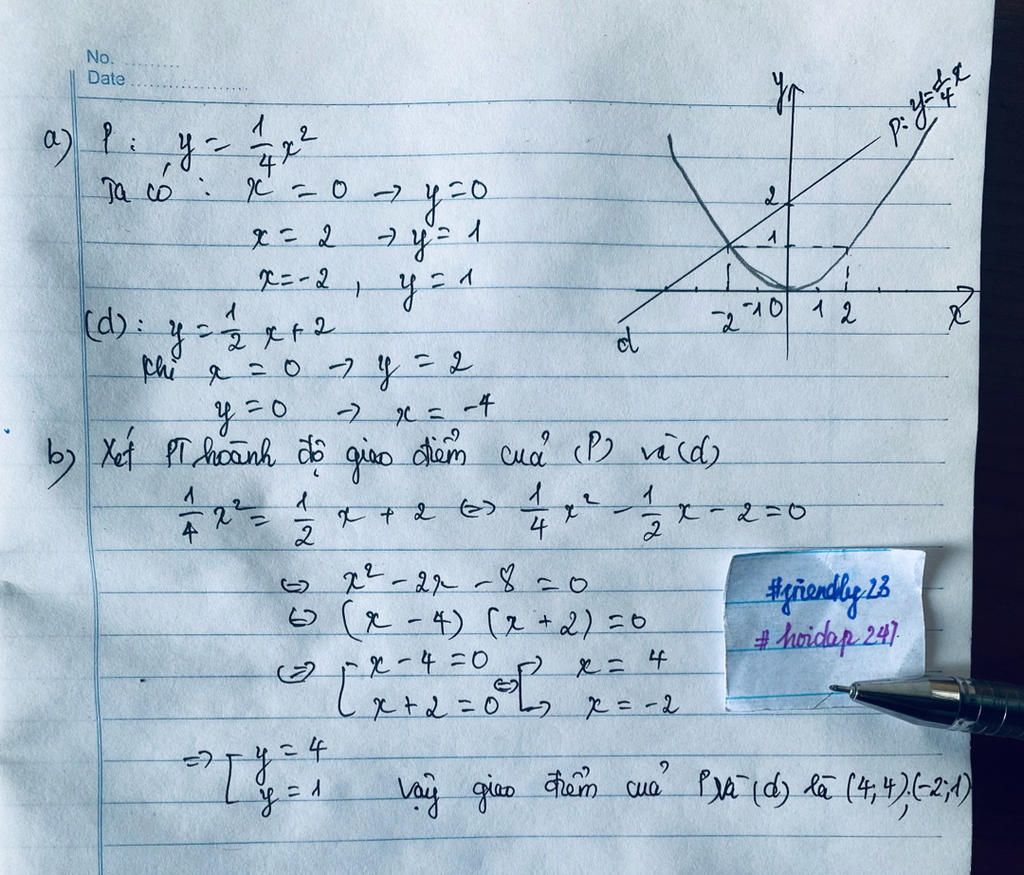 No. ........
Date ....................
a) P : y = 1/4 x²
Ta có : x = 0 → y = 0
x = 2 → y = 1
x = -2 , y = 1
(d) : y = 1/2 x + 2
khi x = 0 → y = 2
y = 0 → x = -4
b) Xét PT hoành độ giao điểm của (P) và (d)
1/4 x² = 1/2 x + 2 ⇔ 1/4 x² - 1/2 x - 2 = 0
⇔ x² - 2x - 8 = 0
⇔ (x - 4) (x + 2) = 0
⇔ [ x - 4 = 0 ⇔ [ → x = 4
x + 2 = 0 → x = -2
⇒ [ y = 4
y = 1 Vậy giao điểm của P và (d) là (4; 4); (-2; 1)
y
P: y = 1/4 x
2
1
-2 -1 0 1 2 x
d
#friendly23
#hoidap247